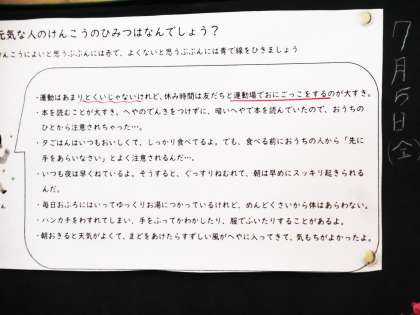 元気な人のけんこうのひみつはなんでしょう？
けんこうによいと思うぶぶんには赤で、よくないと思うぶぶんには青で線をひきましょう
・運動はあまりとくいじゃないけれど、休み時間は友だちと運動場でおにごっこをするのが大すき。
・本を読むことが大すき。へやのでんきをつけずに、暗いへやで本を読んでいたので、おうちの
ひとから注意されちゃった…。
・夕ごはんはいつもおいしくて、しっかり食べてるよ。でも、食べる前におうちの人から「先に
手をあらいなさい」とよく注意されるんだ…。
・いつも夜は早くねているよ。そうすると、ぐっすりねむれて、朝は早めにスッキリ起きられる
んだ。
・毎日おふろにはいってゆっくりお湯につかっているけれど、めんどくさいから体はあらわない。
・ハンカチをわすれてしまい、手をふってかわかしたり、服でふいたりすることがあるよ。
・朝おきると天気がよくて、まどをあけたらすずしい風がへやに入ってきて、気もちがよかったよ。
7月5日(金)